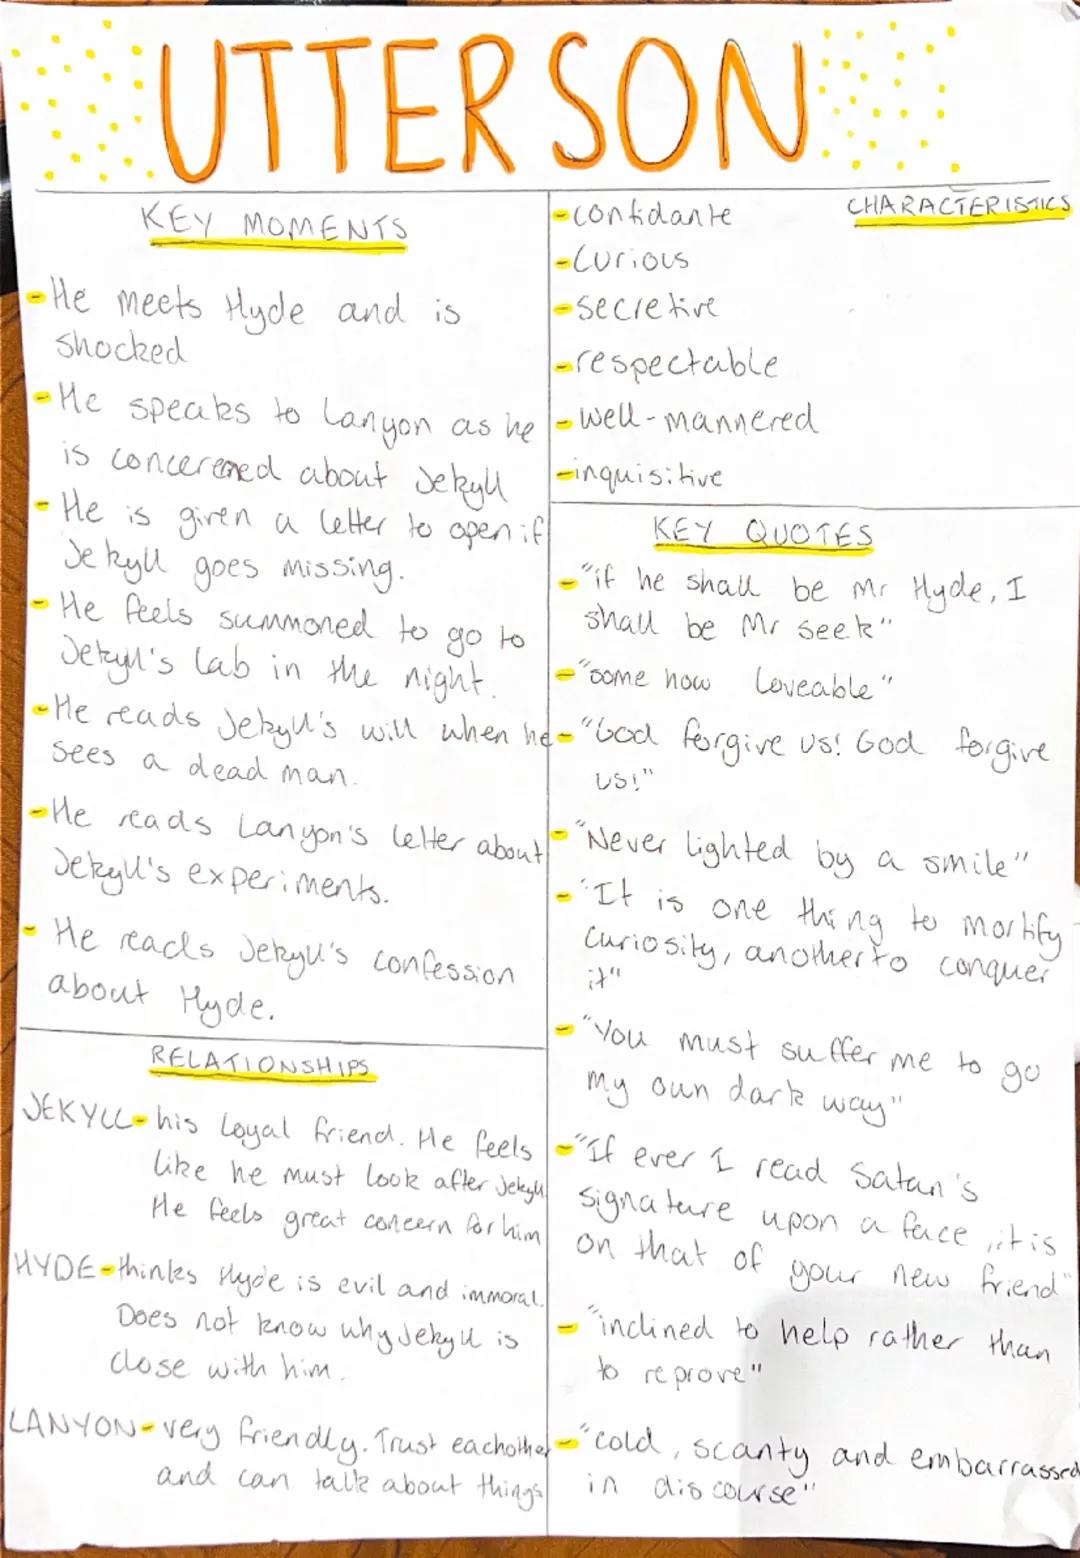 UTTERSON
KEY MOMENTS
-He meets Hyde and is
shocked
-He speaks to Lanyon as he
is concerened about Jekyll
-He is given a letter to open if
Jekyll goes missing.
-He feels summoned to go to
Jekyll's lab in the night.
-He reads Jekyll's will when he
sees a dead man.
-He reads Lanyon's letter about
Jekyll's experiments.
- He reads Jekyll's confession
about Hyde.
RELATIONSHIPS
JEKYLL-his loyal friend. He feels
like he must look after Jekyll.
He feels great concern for him
HYDE-thinks Hyde is evil and immoral.
Does not know why Jekyll is
close with him.
LANYON-very friendly. Trust eachother
and can talk about things
CHARACTERISTICS
-confidante
-curious
-secretive
-respectable
-well-mannered
-inquisitive
KEY QUOTES
-"if he shall be Mr Hyde, I
shall be Mr Seek"
-"some how loveable"
-"God forgive us! God forgive
us!"
-"Never lighted by a smile"
-"It is one thing to mortify
curiosity, another to conquer
it"
-"You must suffer me to go
my own dark way"
-"If ever I read Satan's
signature upon a face, it is
on that of your new friend"
-"inclined to help rather than
to reprove"
-"cold, scanty and embarrassed
in discourse"